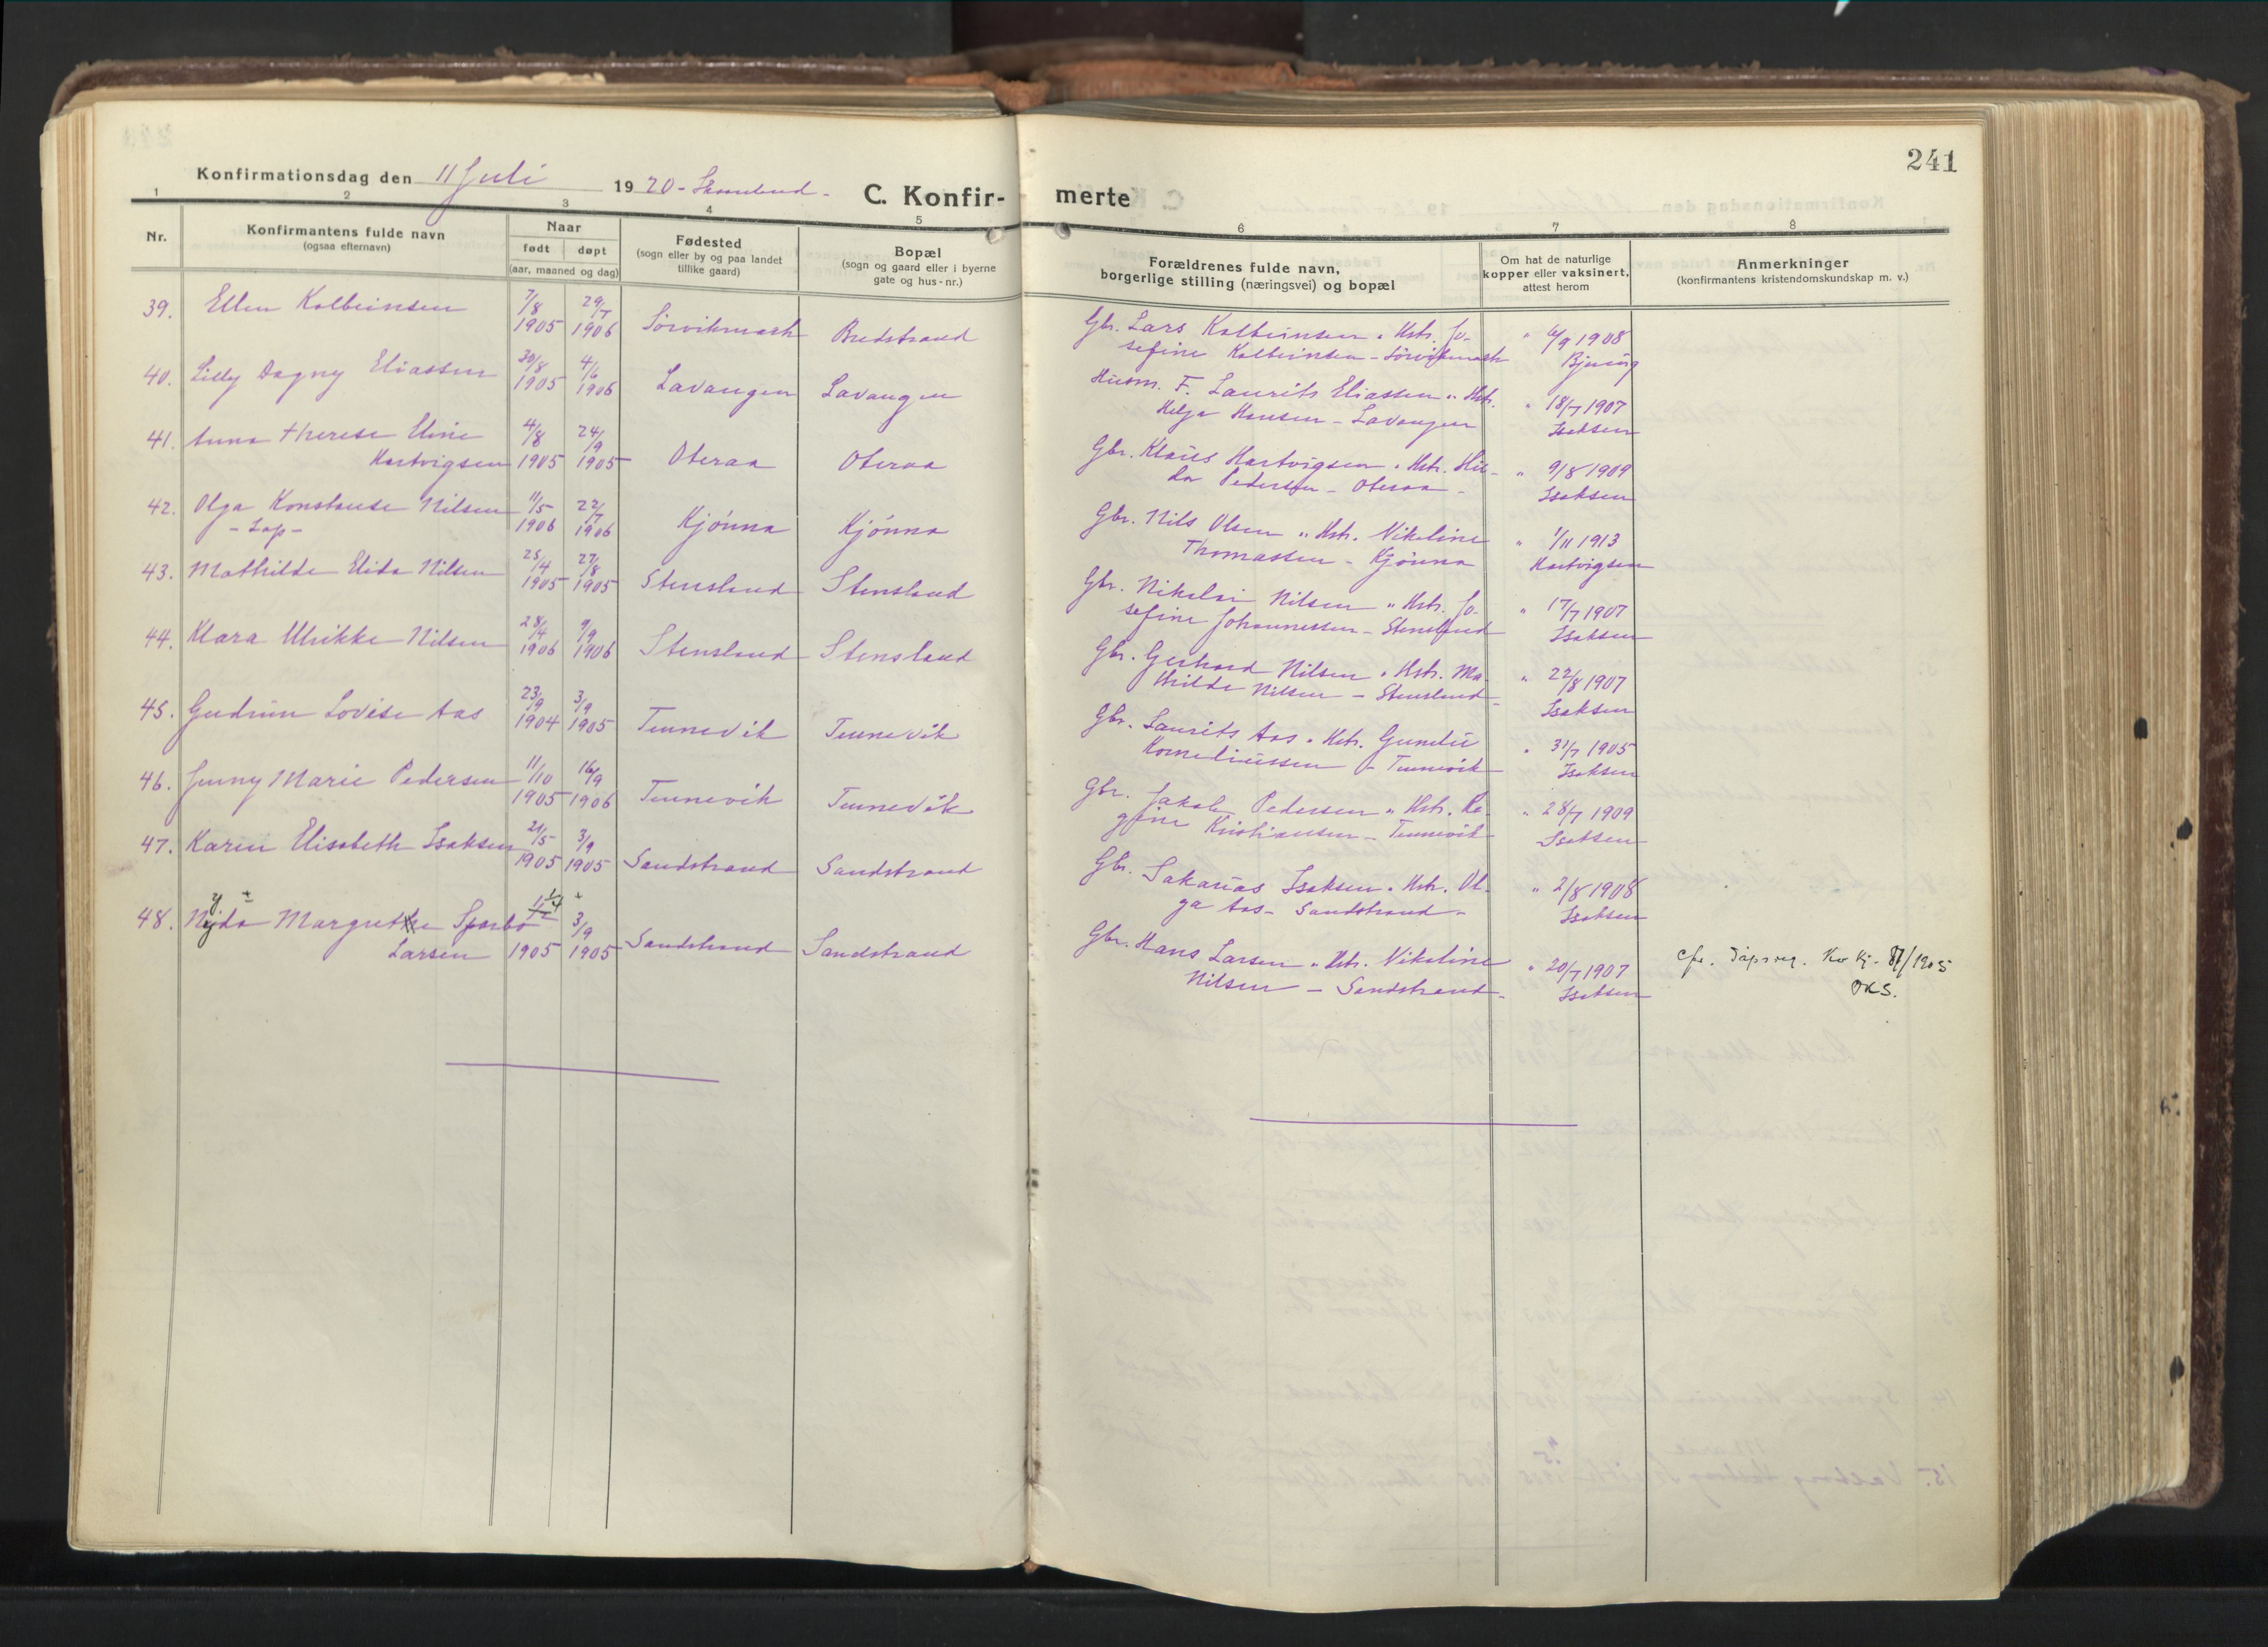 241
Konfirmationsdag den 11 Juli 1920 - Skaanland -
C. Konfir- merte
1 2 3 4 5 6 7 8
Nr.
Konfirmantens fulde navn
(ogsaa efternavn)
Naar
født døpt
(aar, maaned og dag)
Fødested
(sogn eller by og paa landet
tillike gaard)
Bopæl
(sogn og gaard eller i byerne
gate og hus-nr.)
Forældrenes fulde navn,
borgerlige stilling (næringsvei) og bopæl
Om hat de naturlige
kopper eller vaksinert,
attest herom
Anmerkninger
(konfirmantens kristendomskundskap m. v.)
39. Ellen Kolbeinsen 7/8 29/7 Gbr. Lars Kolbeinsen " Hstr. Jo- " 6/9 1908
1905 1906 Sørvikmark Bredstrand sefine Kolbeinsen - Sørvikmark Bjering
40. Lilly Dagny Eliassen 30/8 4/6 Husm. F. Laurits Eliassen " Hstr. " 18/7 1907
1905 1906 Lavangen Lavangen Helga Hansen - Lavangen Isaksen
41. Anna Therese Eline 4/8 24/9 Gbr. Klaus Hartvigsen " Hstr. Hil- " 9/8 1909
Hartvigsen 1905 1905 Oteraa Oteraa da Pedersen - Oteraa - Isaksen
42. Olga Konstanse Nilsen 11/5 22/7 Gbr. Nils Olsen " Hstr. Nikoline " 1/11 1913
- Lap - 1906 1906 Kjønna Kjønna Thomassen - Kjønna Hartvigsen
43. Mathilde Elida Nilsen 25/4 27/8 Gbr. Nikolai Nilsen " Hstr. Jo- " 17/7 1907
1905 1905 Stensland Stensland sefine Johannessen - Stensland Isaksen
44. Klara Ulrikke Nilsen 28/4 9/9 Gbr. Gerhard Nilsen " Hstr. Ma- " 22/8 1907
1906 1906 Stensland Stensland thilde Nilsen - Stensland - Isaksen
45. Gudrun Lovise Aas 23/9 3/9 Gbr. Laurits Aas " Hstr. Gunelie " 31/7 1905
1904 1905 Tennevik Tennevik Korneliussen - Tennevik Isaksen
46. Jenny Marie Pedersen 11/10 16/9 Gbr. Jakob Pedersen " Hstr. Re- " 28/7 1909
1905 1906 Tennevik Tennevik gine Kristiansen - Tennevik Isaksen
47. Karen Elisabeth Isaksen 21/5 3/9 Gbr. Sakarias Isaksen " Hstr. Ol- " 2/8 1908
1905 1905 Sandstrand Sandstrand ga Aas - Sandstrand - Isaksen
48. Nyda Margrethe Sparbo 3/9 Gbr. Hans Larsen " Hstr. Nikoline " 20/7 1907
Larsen 1905 1905 Sandstrand Sandstrand Nilsen - Sandstrand - Isaksen
cfr. Dåpsreg. 87/1905
OKS.